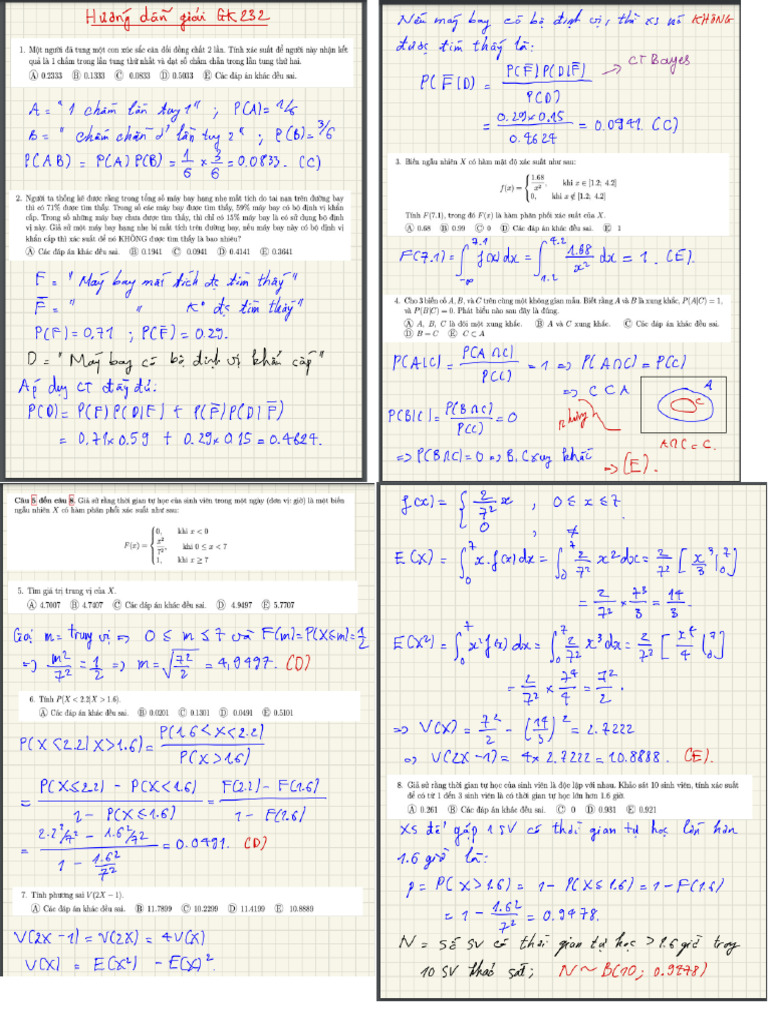 Hướng dẫn giải GK232
1. Một người đã tung một con xúc sắc cân đối đồng chất 2 lần. Tính xác suất để người này nhận kết
quả là 1 chấm trong lần tung thứ nhất và đạt số chấm chẵn trong lần tung thứ hai.
Ⓐ 0.2333 Ⓑ 0.1333 Ⓒ 0.0833 Ⓓ 0.5033 Ⓔ Các đáp án khác đều sai.
A = "1 chấm lần tung 1" ; P(A) = 1/6
B = " chấm chẵn ở lần tung 2" ; P(B) = 3/6
P(AB) = P(A) P(B) = 1/6 × 3/6 = 0.0833. (C)
2. Người ta thống kê được rằng trong tổng số máy bay hạng nhẹ mất tích do tai nạn trên đường bay
thì có 71% được tìm thấy. Trong số các máy bay được tìm thấy, 59% máy bay có bộ định vị khẩn
cấp. Trong số những máy bay chưa được tìm thấy, thì chỉ có 15% máy bay là có sử dụng bộ định
vị này. Giả sử một máy bay hạng nhẹ bị mất tích trên đường bay, nếu máy bay này có bộ định vị
khẩn cấp thì xác suất để nó KHÔNG được tìm thấy là bao nhiêu?
Ⓐ Các đáp án khác đều sai. Ⓑ 0.1941 Ⓒ 0.0941 Ⓓ 0.4141 Ⓔ 0.3641
F = " Máy bay mất tích đc tìm thấy"
F̅ = " " " K° đc tìm thấy"
P(F) = 0,71 ; P(F̅) = 0.29.
D = "Máy bay có bộ định vị khẩn cấp"
Áp dụng CT đầy đủ:
P(D) = P(F) P(D|F) + P(F̅) P(D|F̅)
= 0.71×0.59 + 0.29×0.15 = 0.4624.
Nếu máy bay có bộ định vị, thì xs nó KHÔNG
được tìm thấy là:
P(F̅|D) = P(F̅) P(D|F̅) / P(D) → CT Bayes
= 0.29×0.15 / 0.4624 = 0.0941 (C)
3. Biến ngẫu nhiên X có hàm mật độ xác suất như sau:
f(x) = { 1.68/x², khi x ∈ [1.2; 4.2]
0, khi x ∉ [1.2; 4.2]
Tính F(7.1), trong đó F(x) là hàm phân phối xác suất của X.
Ⓐ 0.68 Ⓑ 0.99 Ⓒ 0 Ⓓ Các đáp án khác đều sai. Ⓔ 1
F(7.1) = ∫_{-∞}^{7.1} f(x)dx = ∫_{1.2}^{4.2} 1.68/x² dx = 1. (E).
4. Cho 3 biến cố A, B, và C trên cùng một không gian mẫu. Biết rằng A và B là xung khắc, P(A|C) = 1,
và P(B|C) = 0. Phát biểu nào sau đây là đúng.
Ⓐ A, B, C là đôi một xung khắc. Ⓑ A và C xung khắc. Ⓒ Các đáp án khác đều sai.
Ⓓ B = C Ⓔ C ⊂ A
P(A|C) = P(A∩C) / P(C) = 1 => P(A∩C) = P(C)
=> C ⊂ A
A
C
P(B|C) = P(B∩C) / P(C) = 0
A∩C = C.
=> P(B∩C) = 0 => B, C xung khắc
=> (E).
Câu 5 đến câu 8. Giả sử rằng thời gian tự học của sinh viên trong một ngày (đơn vị: giờ) là một biến
ngẫu nhiên X có hàm phân phối xác suất như sau:
F(x) = { 0, khi x < 0
x²/7², khi 0 ≤ x < 7
1, khi x ≥ 7
5. Tìm giá trị trung vị của X.
Ⓐ 4.7007 Ⓑ 4.7407 Ⓒ Các đáp án khác đều sai. Ⓓ 4.9497 Ⓔ 5.7707
Gọi m = trung vị => 0 ≤ m ≤ 7 và F(m) = P(X≤m) = 1/2
=> m²/7² = 1/2 => m = √(7²/2) = 4,9497. (D)
6. Tính P(X < 2.2|X > 1.6).
Ⓐ Các đáp án khác đều sai. Ⓑ 0.0201 Ⓒ 0.1301 Ⓓ 0.0491 Ⓔ 0.5101
P(X≤2.2|X>1.6) = P(1.6<X≤2.2) / P(X>1.6)
= P(X≤2.2) - P(X<1.6) / 1 - P(X≤1.6) = F(2.2) - F(1.6) / 1 - F(1.6)
= 2.2²/7² - 1.6²/7² / 1 - 1.6²/7² = 0.0491. (D)
7. Tính phương sai V(2X − 1).
Ⓐ Các đáp án khác đều sai. Ⓑ 11.7899 Ⓒ 10.2299 Ⓓ 11.4199 Ⓔ 10.8889
V(2X-1) = V(2X) = 4V(X)
V(X) = E(X²) - E(X)².
f(x) = { 2/7² x , 0 ≤ x ≤ 7
0 , ≠
E(X) = ∫_0^7 x.f(x)dx = ∫_0^7 2/7² x² dx = 2/7² [ x³/3 |_0^7 ]
= 2/7² × 7³/3 = 14/3.
E(X²) = ∫_0^7 x² f(x)dx = ∫_0^7 2/7² x³ dx = 2/7² [ x⁴/4 |_0^7 ]
= 2/7² × 7⁴/4 = 7²/2.
=> V(X) = 7²/2 - (14/3)² = 2.7222
=> V(2X-1) = 4×2.7222 = 10.8888. (E).
8. Giả sử rằng thời gian tự học của sinh viên là độc lập với nhau. Khảo sát 10 sinh viên, tính xác suất
để có từ 1 đến 3 sinh viên là có thời gian tự học lớn hơn 1.6 giờ.
Ⓐ 0.261 Ⓑ Các đáp án khác đều sai. Ⓒ 0 Ⓓ 0.931 Ⓔ 0.921
XS để gặp 1 SV có thời gian tự học lớn hơn
1.6 giờ là:
p = P(X>1.6) = 1 - P(X≤1.6) = 1 - F(1.6)
= 1 - 1.6²/7² = 0.9478.
N = số SV có thời gian tự học > 1.6 giờ trong
10 SV khảo sát; N ~ B(10; 0.9478)